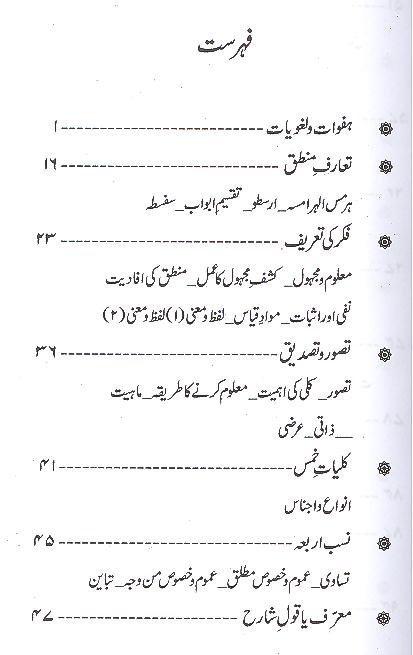 فہرست
ہفوات و لغویات ------------------------ ۱
تعارفِ منطق ------------------------ ۱۶
ہرمس الہرامسہ_ ارسطو_ تقسیمِ ابواب_ سفسطہ
فکر کی تعریف ------------------------ ۲۳
معلوم و مجہول_ کشفِ مجہول کا عمل_ منطق کی افادیت
نفی اور اثبات_ موادِ قیاس_ لفظ و معنی (۱) لفظ و معنی (۲)
تصور و تصدیق ------------------------ ۳۶
تصور_ کلی کی اہمیت_ معلوم کرنے کا طریقہ_ ماہیت
__ ذاتی_ عرضی
کلیاتِ خمس ------------------------ ۴۱
انواع و اجناس
نسب اربعہ ------------------------ ۴۵
تساوی_ عموم و خصوص مطلق_ عموم و خصوص من وجہ_ تباین
معرِّف یا قولِ شارح ------------------------ ۴۷